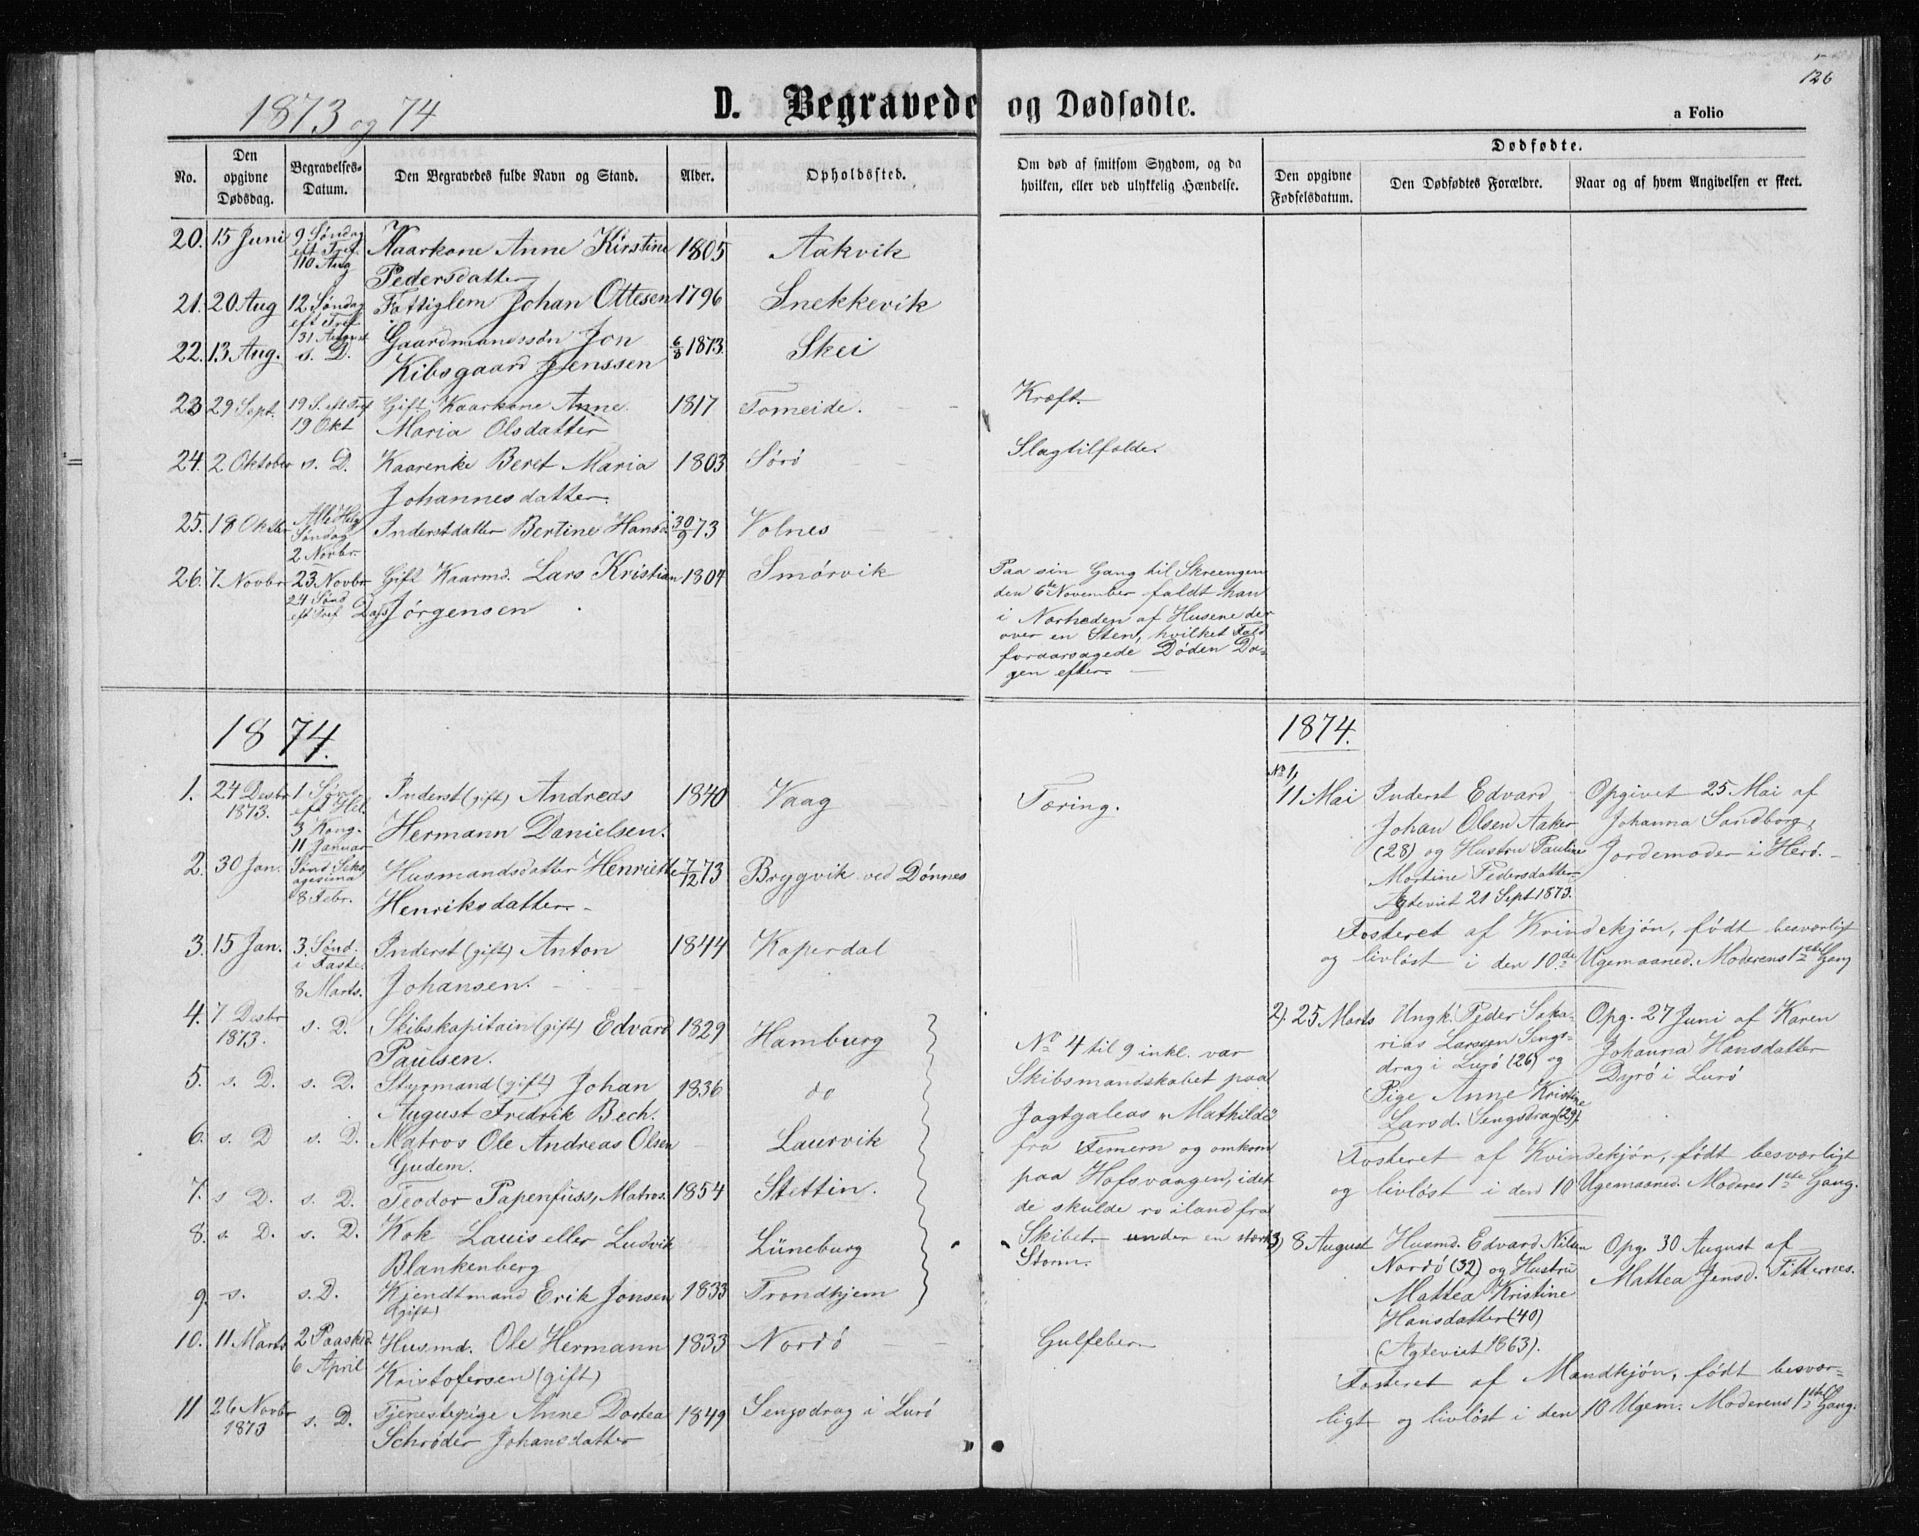 126
1873 og 74
D. Begravede og Dødfødte.
a Folio
No.
Den opgivne Dødsdag.
Begravelses-Datum.
Den Begravedes fulde Navn og Stand.
Alder.
Opholdssted.
Om død af smitsom Sygdom, og da hvilken, eller ved ulykkelig Hændelse.
Dødfødte.
Den opgivne Fødselsdatum.
Den Dødfødtes Forældre.
Naar og af hvem Angivelsen er skeet.
20. 15 Juni 9 Søndag eft Tref. 10 Aug Kaarkone Anne Kirstine Pedersdatter 1805 Aakvik
21. 20 Aug 12 Søndag eft Tref 31 August Fattiglem Johan Ottesen 1796 Snekkevik
22. 13 Aug. s. D. Gaardmandssøn Jon Kibsgaard Jenssen 6/8 1873 Skei
23 29 Sept. 19 S. eft Tref 19 Okt Gift Kaarkone Anne Maria Olsdatter 1817 Tomeide. Kræft.
24. 2 Oktober s. D. Kaarenke Beret Maria Johannesdatter. 1803 Sørø Slagtilfælde.
25. 18 Oktbr Alle Helg Søndag 2 Novbr. Inderstdatter Bertine Hansd. 30/9 73 Volnes
26. 7 Novbr 23 Novbr 24 Sønd eft Tref Gift Kaarmd. Lars Kristian Dass Jørgensen 1804 Smørvik
Paa sin Gang til Skreengen
den 6te November faldt han
i Nærheden af Husene der
over en Sten, hvilket Fald
foraarsagede Døden Da-
gen efter.
1874.
1874.
1. 24 Desbr 1873. 1 Sønd eft Hel. 3 Kong. 11 Januar Inderst (gift) Andreas Hermann Danielsen. 1840 Vaag Tæring.
2. 30 Jan. Sønd Seksagesima 8 Febr. Husmandsdatter Henriette Henriksdatter 7/12 73 Brygvik ved Dønnes
3. 15 Jan. 3. Sønd. i Faste. 8 Marts. Inderst (gift) Anton Johansen. 1844 Kaperdal
4. 7 Desbr 1873. s. D. Skibskapitain (gift) Edvard Paulsen. 1829 Hamburg
5. s. D. s. D. Styrmand (gift) Johan August Fredrik Bech. 1836 do
6. s. D s. D. Matros Ole Andreas Olsen Gudem. Laurvik
7. s D. s. D. Teodor Papenfuss, Matros. 1854 Stettin.
8. s. D. s. D. Kok Lauis eller Ludvik Blankenberg Lüneburg
9. s. s. D. Kjendtmand Erik Jonsen (gift) 1833 Trondhjem
No 4 til 9 inkl. var
Skibsmandskabet paa
Jagtgaleas "Mathilde"
fra Femern og omkom
paa Hofsvaagen, idet
de skulde ro iland fra
Skibet under en stærk
Storm.
10. 11 Marts 2 Paaskd. 6 April Husmd. Ole Hermann Kristofersen (gift) 1833 Nordø Gulfeber
11 26 Novbr 1873 s. D. Tjenestepige Anne Dortea Schrøder Johansdatter 1849 Sengsdrag i Lurø
No 1, 11 Mai
Inderst Edvard
Johan Olsen Aaker
(28) og Hustru Pauline
Martine Pedersdatter
Ægteviet 21 Sept 1873.
Opgivet 25 Mai af
Johanna Sandborg,
Jordemoder i Herø.
Fosteret af Kvindekjøn, født besværligt
og livløst i den 10de Ugemaaned. Moderens 1ste Gang
2). 25 Marts
Ungk. Peder Saka-
rias Larsen Sengs-
drag i Lurø (26) og
Pige Anne Kristine
Larsd. Sengsdrag (29).
Opg. 27 Juni af Karen
Johanna Hansdatter
Dyrø i Lurø
Fosteret af Kvindekjøn, født besværligt
og livløst i den 10 Ugemaaned. Moderes 1ste Gang.
3) 8 August
Husmd. Edvard Nilsen
Nordø (32) og Hustru
Mattea Kristine
Hansdatter (40)
(Ægteviet 1863).
Opg. 30 August af
Mattea Jensd. Titternes.
Fosteret af Mandkjøn, født besvær-
ligt og livløst i den 10 Ugem. Moderens 1ste Gang.